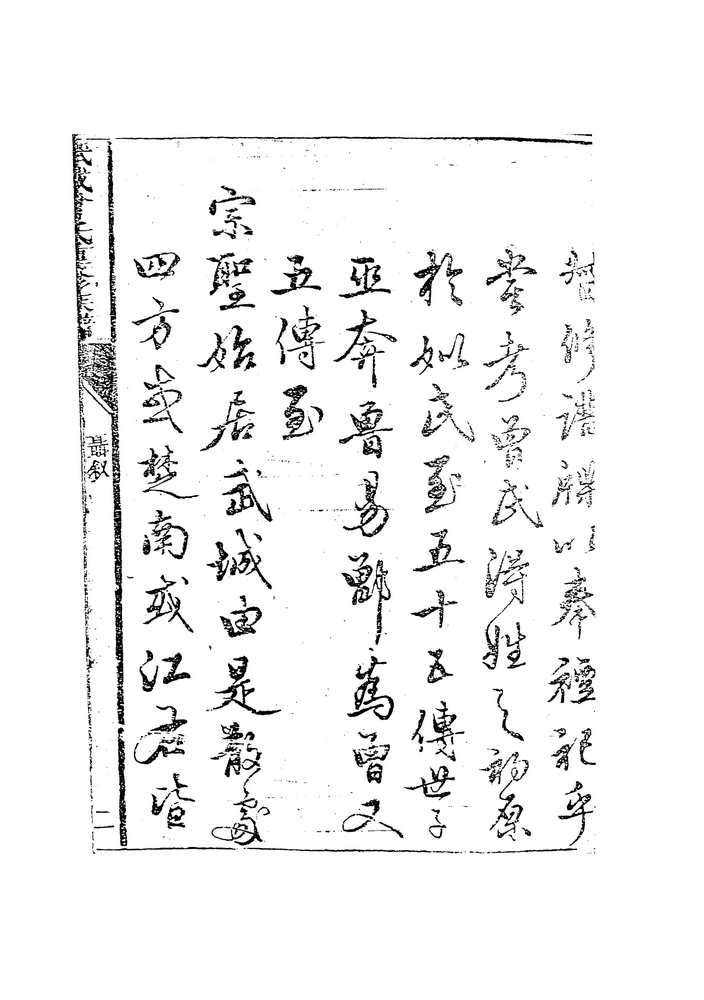 督修譜牒以奉禋祀乎
嘗考曾氏得姓之初原
於姒氏至五十五傳世子
巫奔魯易鄫為曾又
五傳至
宗聖始居武城由是散處
四方或楚南或江右皆
武城曾氏重修族譜
聶叙
二